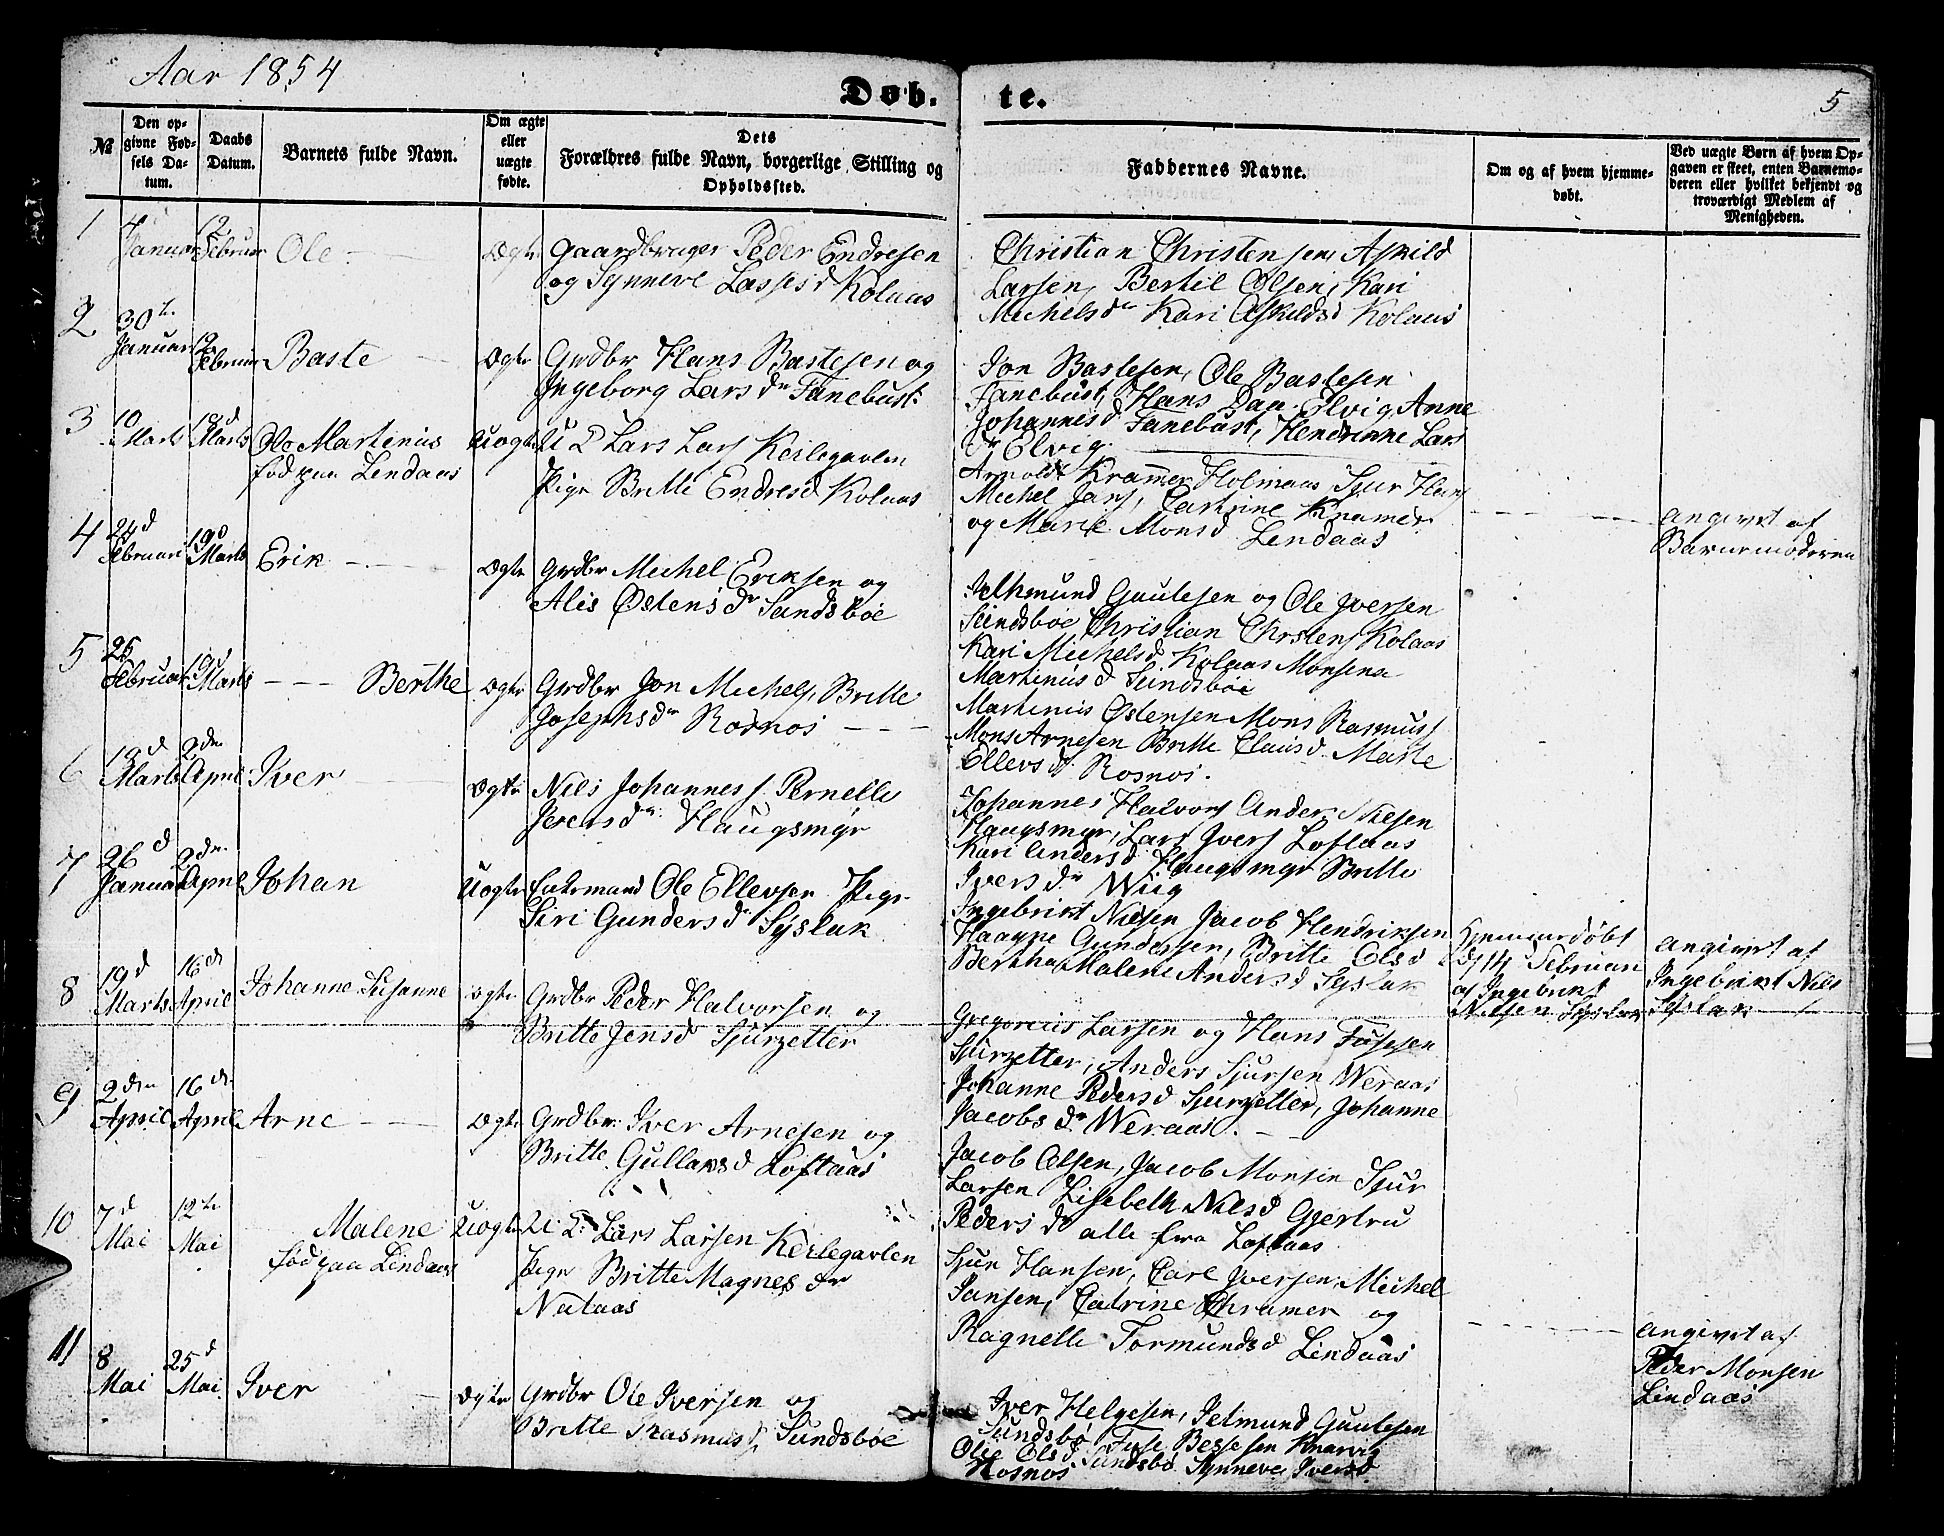 Aar 1854
Døb-
te.
5
№
Den op-
givne Fød-
sels Da-
tum.
Daabs
Datum.
Barnets fulde Navn.
Om ægte
eller
uægte
fødte.
Dets
Forældres fulde Navn, borgerlige Stilling og
Opholdssted.
Faddernes Navne.
Om og af hvem hjemme-
døbt.
Ved uægte Børn af hvem Op-
gaven er skeet, enten Barnemo-
deren eller hvilket bekjendt og
troværdigt Medlem af
Menigheden.
1
4
Januar
12
Februar
Ole
Ægte
Gaardbruger Peder Endresen
og Synneve Lasses d Kolaas
Christian Christensen, Askild
Larsen, Berthil Olsen, Kari
Michels dr Kari Askilds d Kolaas
2
30te
Januar
12
Februar
Baste
Ægte
Grdbr Hans Bastesen og
Ingeborg Lars dr Fanebust
Jon Bastesen, Ole Bastesen
Fanebust, Hans Elvig, Anne
Johannes d Fanebust, Lars
dr Elvig.
3
10
Marts
18d
Marts
Ole Martinus
fød paa Lendaas
Uægte
U C Lars Lars Keilegavlen
Pige Britte Endres d Kolaas
Arnoldt Kramer Holmaas Sjur Hans
Michel Jans, Cathrine Kramer
og Marie Mons d Lendaas
angivet af
Barnemoderen
4
24d
Februari
19d
Marts
Erik
Ægte
Grdbr Michel Eriksen og
Alis Østens dr Sundsbøe
Gautesen og Ole Iversen
Sundsbøe, Christian Chrstens Kolaas
Kari Michels d Kolaas Monsena
Martinus d Sundsbøe
5
25
Februar
19d
Marts
Berthe
Ægte
Grdbr Jon Michels, Britte
Josephs dr Rosnos
Martinus Østensen Mons Rasmuss
Mons Arnesen Britte Claus d. Marte
Ellers d. Rosnos.
6
19d
Marts
2den
April
Iver
Ægte
Niels Johanness. Pernelle
Jerens dr. Haugsmyr
Johannes Halvors Anders Nilesen
Haugsmyr, Lars Ivers Loftaas
Kari Anders d Haugsmyr Britte
Ivers dr Wiig
7
26d
Januar
2den
April
Johan
Uægte
Ole Ellevsen Pige
Siri Gunders dr Syslak
Ingebrikt Nielsen Jacob Hendriksen
Gundersen, Britte Ols d
Bertha Malene Anders d Syslak
Hjemmedøbt
d 14 Februar
af Ingebrikt
Nilsen Syslak
angivet af
Ingebrikt Nils
Syslak
8
19d
Marts
16de
April
Johanne Susanne
Ægte
Grdbr Peder Halvorsen og
Britte Jens d Sjursetter
Gregorius Larsen og Hans
Sjursetter, Anders Sjursen Weraas
Johanne Peders d Sjursetter, Johanne
Jacobs dr Weraas.
9
2den
April
16de
April
Arne
Ægte
Grdbr. Iver Arnesen og
Britte Gullaks d Loftaas
Jacob Olsen, Jacob Monsen Sjur
Larsen Lisebeth Nils d Gjertru
Peders dr alle fra Loftaas
10
7d
Mai
12te
Mai
Malene
fød paa Lindaas
Uægte
U C: Lars Larsen Keilegavlen
Pige Britte Magnes dr
Nataas
Sjur Hansen, Carl Iversen, Michel
Jansen, Catrine Chramer og
Ragnelle Tormunds d Lindaas
angivet af
Peder Monsen
Lindaas
11
8
Mai
25d
Mai.
Iver
Ægte
Grdbr Ole Iversen og
Britte Rasmus d Sundsbøe
Iver Helgesen, Jetmund Gautesen
Sundsbø Bessesen Knarvig
Olie Ols d Sundsbø Synneve Ivers d
Rosnos